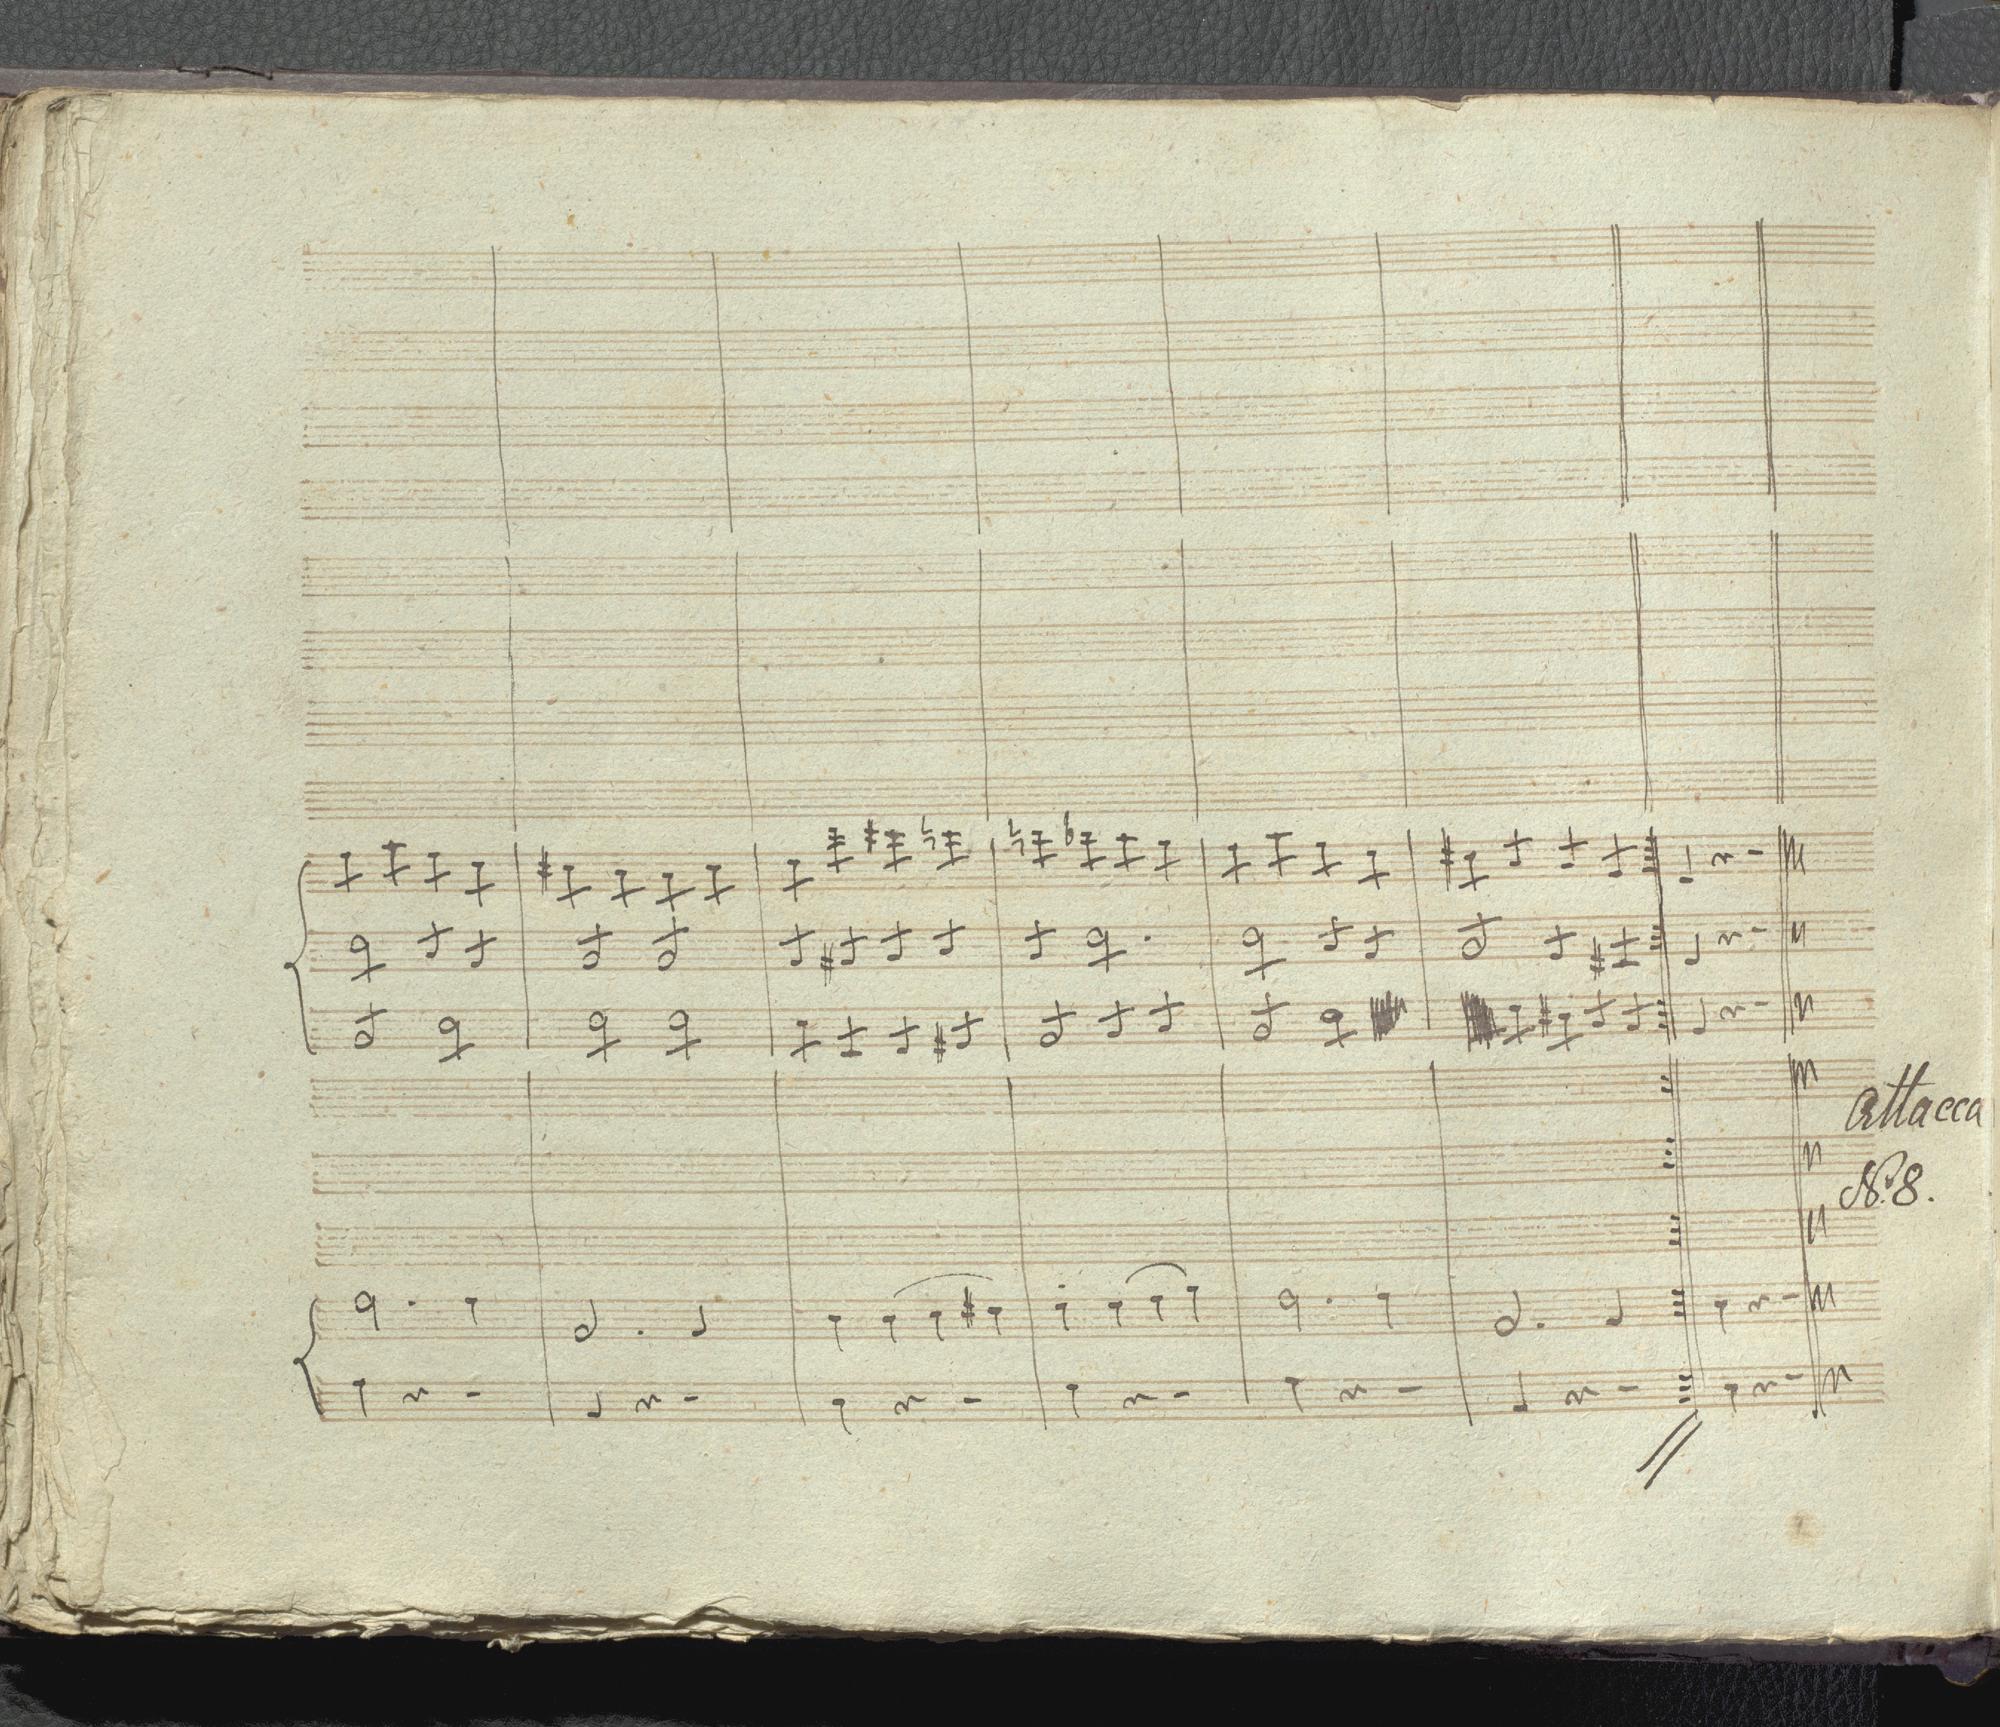 attacca
No. 8.